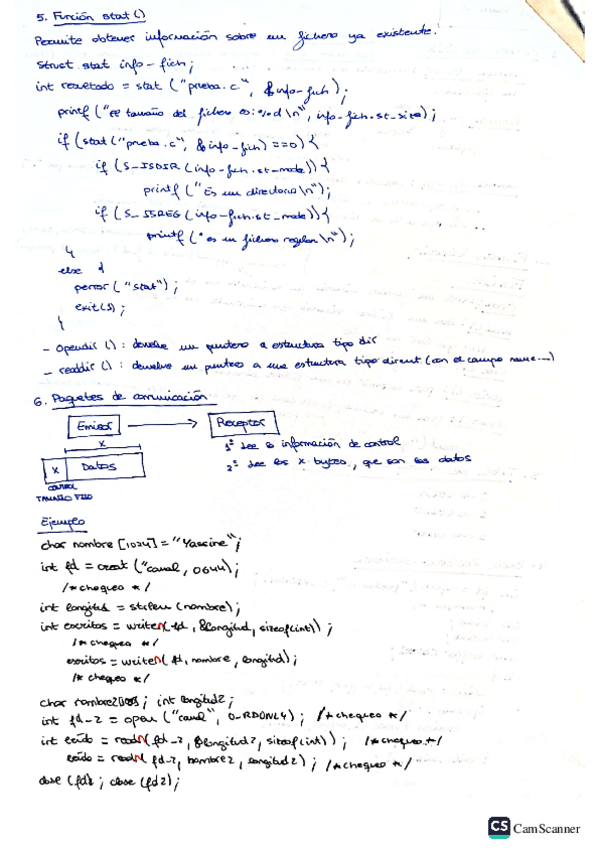 5. Función stat()
Permite obtener información sobre un fichero ya existente.
struct stat info-fich;
int resultado = stat ("prueba.c", &info-fich);
printf ("el tamaño del fichero es: %d \n", info-fich.st_size);
if (stat("prueba.c", &info-fich) ==0) {
if (S_ISDIR (info-fich.st-mode)) {
printf ("Es un directorio \n");
if (S_ISREG (info-fich.st-mode)) {
printf (" es un fichero regular \n");
}
else {
perror ("stat");
exit(1);
}
- opendir () : devuelve un puntero a estructura tipo dir
- readdir () : devuelve un puntero a una estructura tipo dirent (con el campo name...)
6. Paquetes de comunicación
Emisor
Receptor
x
1º lee la información de control
x Datos
2º lee los x bytes, que son los datos
control
TAMAÑO FIJO
Ejemplo
char nombre [1024] = "Yascine";
int fd = creat ("canal, 0644);
/* chequeo */
int longitud = strlen (nombre);
int escritos = writeN( fd, &longitud, sizeof(int));
/* chequeo */
escritos = writeN( fd, nombre, longitud);
/* chequeo */
char nombre2 ; int longitud2;
int fd-2 = open ("canal", O-RDONLY); /* chequeo */
int leido = readN( fd-2, &longitud2, sizeof(int)); /* chequeo */
leido = readN( fd-2, nombre2, longitud2); /* chequeo */
close (fd); close (fd2);
CS CamScanner